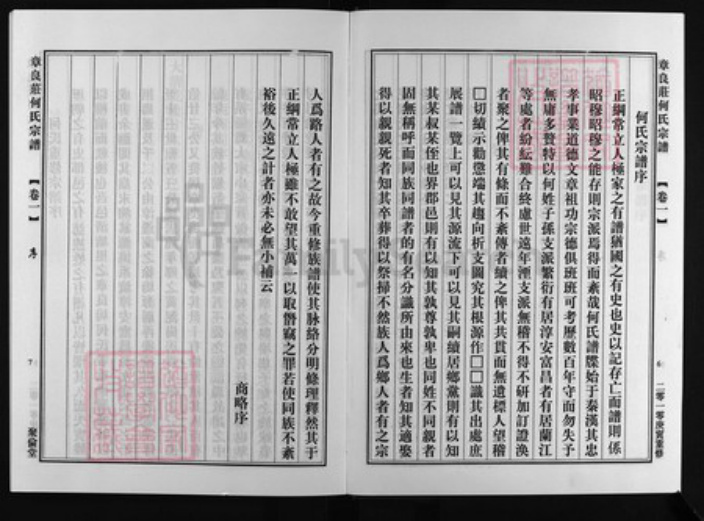 章良莊何氏宗譜
【卷一】
序
6
二零一零庚寅重修
何氏宗譜序
正綱常立人極家之有譜猶國之有史也史以記存亡而譜則係
昭穆昭穆之能存則宗派焉得而紊哉何氏譜牒始于秦漢其忠
孝事業道德文章祖功宗德俱班班可考歷數百年守而勿失予
無庸多贅特以何姓子孫支派繁衍有居淳安富昌者有居蘭江
等處者紛紜難合終慮世遠年湮支派無稽不得不研加訂證渙
者聚之俾其有條而不紊傳者續之俾其共貫而無遺標人望稽
□切績示勸懲端其趨向析支圖究其根源作□□識其出處庶
展譜一覽上可以見其源流下可以見其嗣續居鄉黨則有以知
其某叔某侄也界郡邑則有以知其孰尊孰卑也同姓不同親者
固無稱呼而同族同譜者的有名分識所由來也生者知其適娶
得以親親死者知其卒葬得以祭掃不然族人爲鄉人者有之宗
人爲路人者有之故今重修族譜使其脉絡分明條理釋然其于
正綱常立人極雖不敢望其萬一以取僭竊之罪若使同族不紊
裕後久遠之計者亦未必無小補云
商略序
章良莊何氏宗譜
【卷一】
序
7
聚倫堂
FamilySearch